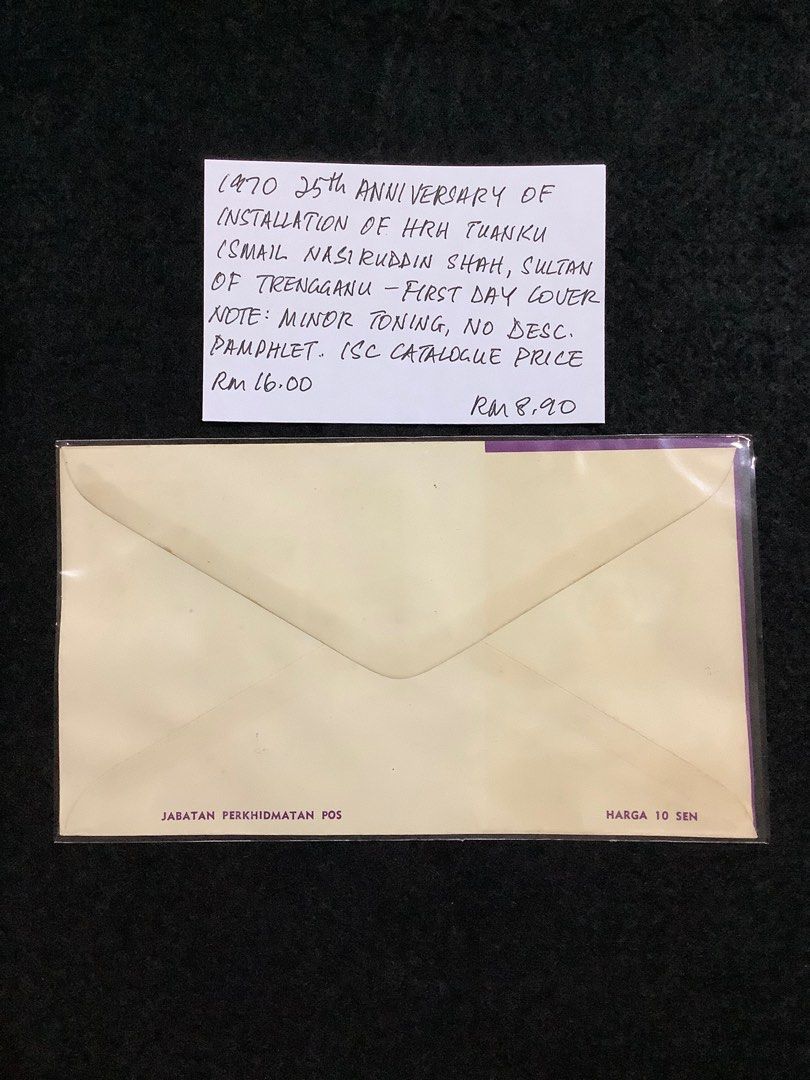 1970 25th ANNIVERSARY OF
INSTALLATION OF HRH TUANKU
ISMAIL NASIRUDDIN SHAH, SULTAN
OF TRENGGANU - FIRST DAY COVER
NOTE: MINOR TONING, NO DESC.
PAMPHLET. ISC CATALOGUE PRICE
RM 16.00
RM 8.90
JABATAN PERKHIDMATAN POS
HARGA 10 SEN